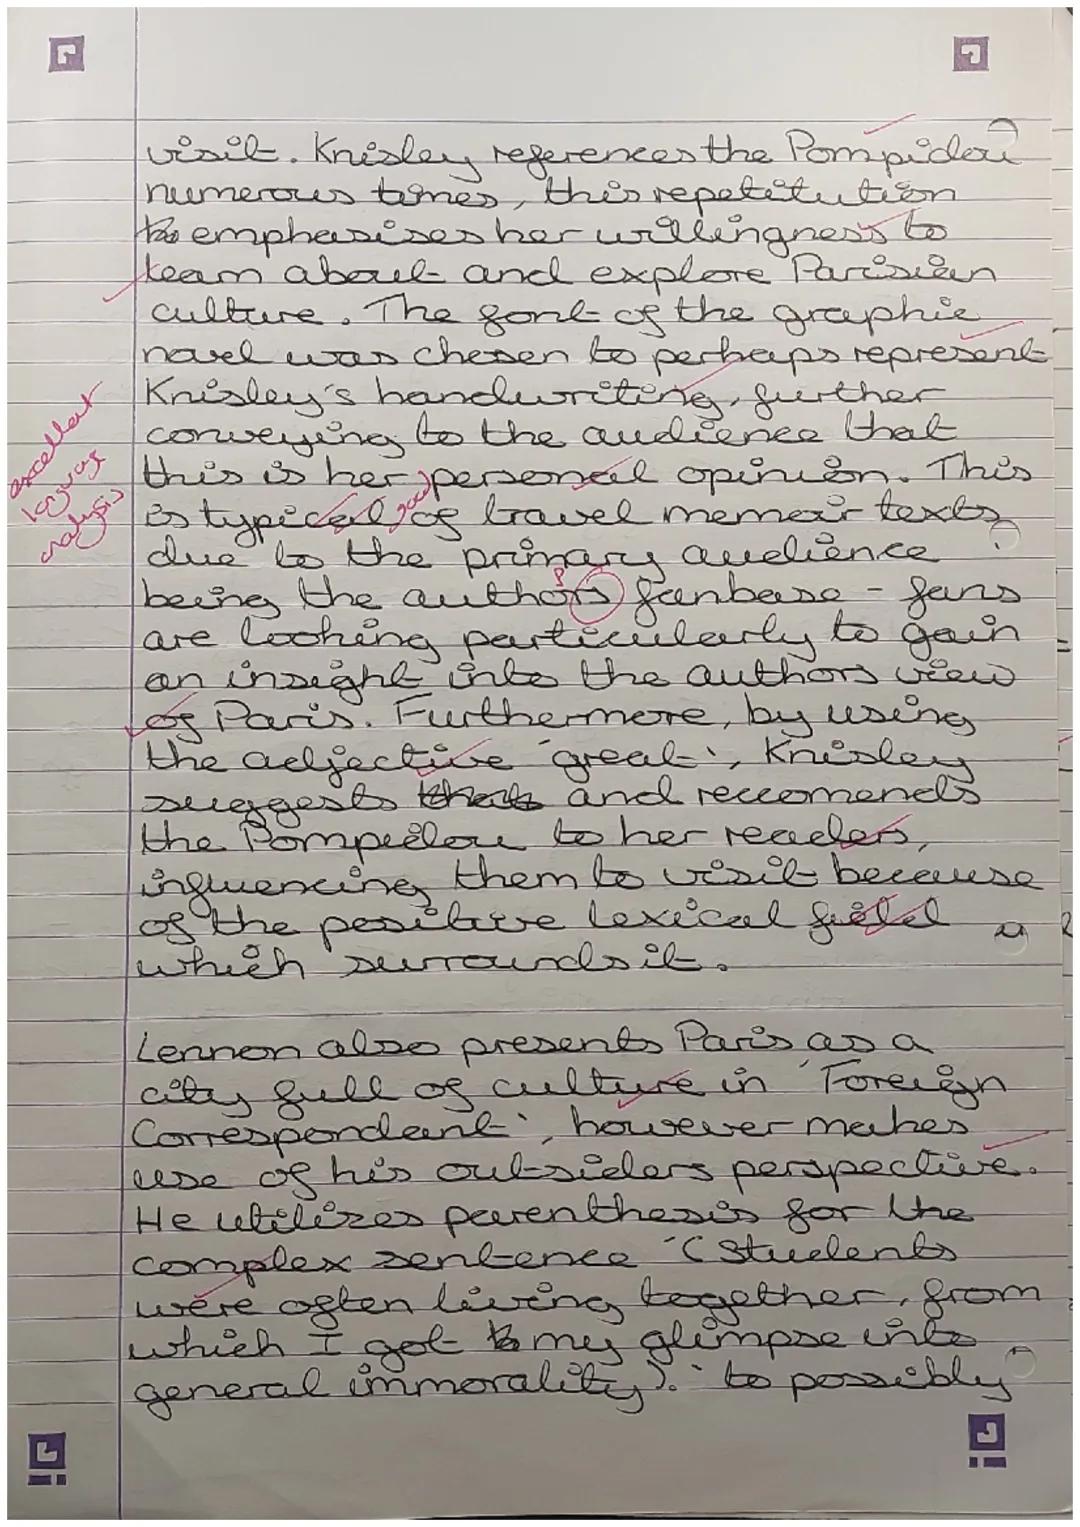 visit. Knisley references the Pompidou
numerous times, this repetitution
emphasises her willingness to
learn about and explore Parisian
culture. The font of the graphic
novel was chosen to perhaps represent
Knisley's handwriting, further
conveying to the audience that
this is her personal opinion. This
is typical of travel memoir texts
due to the primary audience
being the authors fanbase - fans
are looking particularly to gain
an insight into the authors view
of Paris. Furthermore, by using
the adjective 'great', Knisley
suggests that and reccomends
the Pompidou to her readers,
influencing them to visit because
of the positive lexical field
which surrounds it.
Lennon also presents Paris as a
city full of culture in 'Foreign
Correspondant', however makes
use of his outsiders perspective.
He utilizes parenthesis for the
complex sentence '(Students
were often living together, from
which I got my glimpse into
general immorality).' to possibly
excellent
language
analysis
good